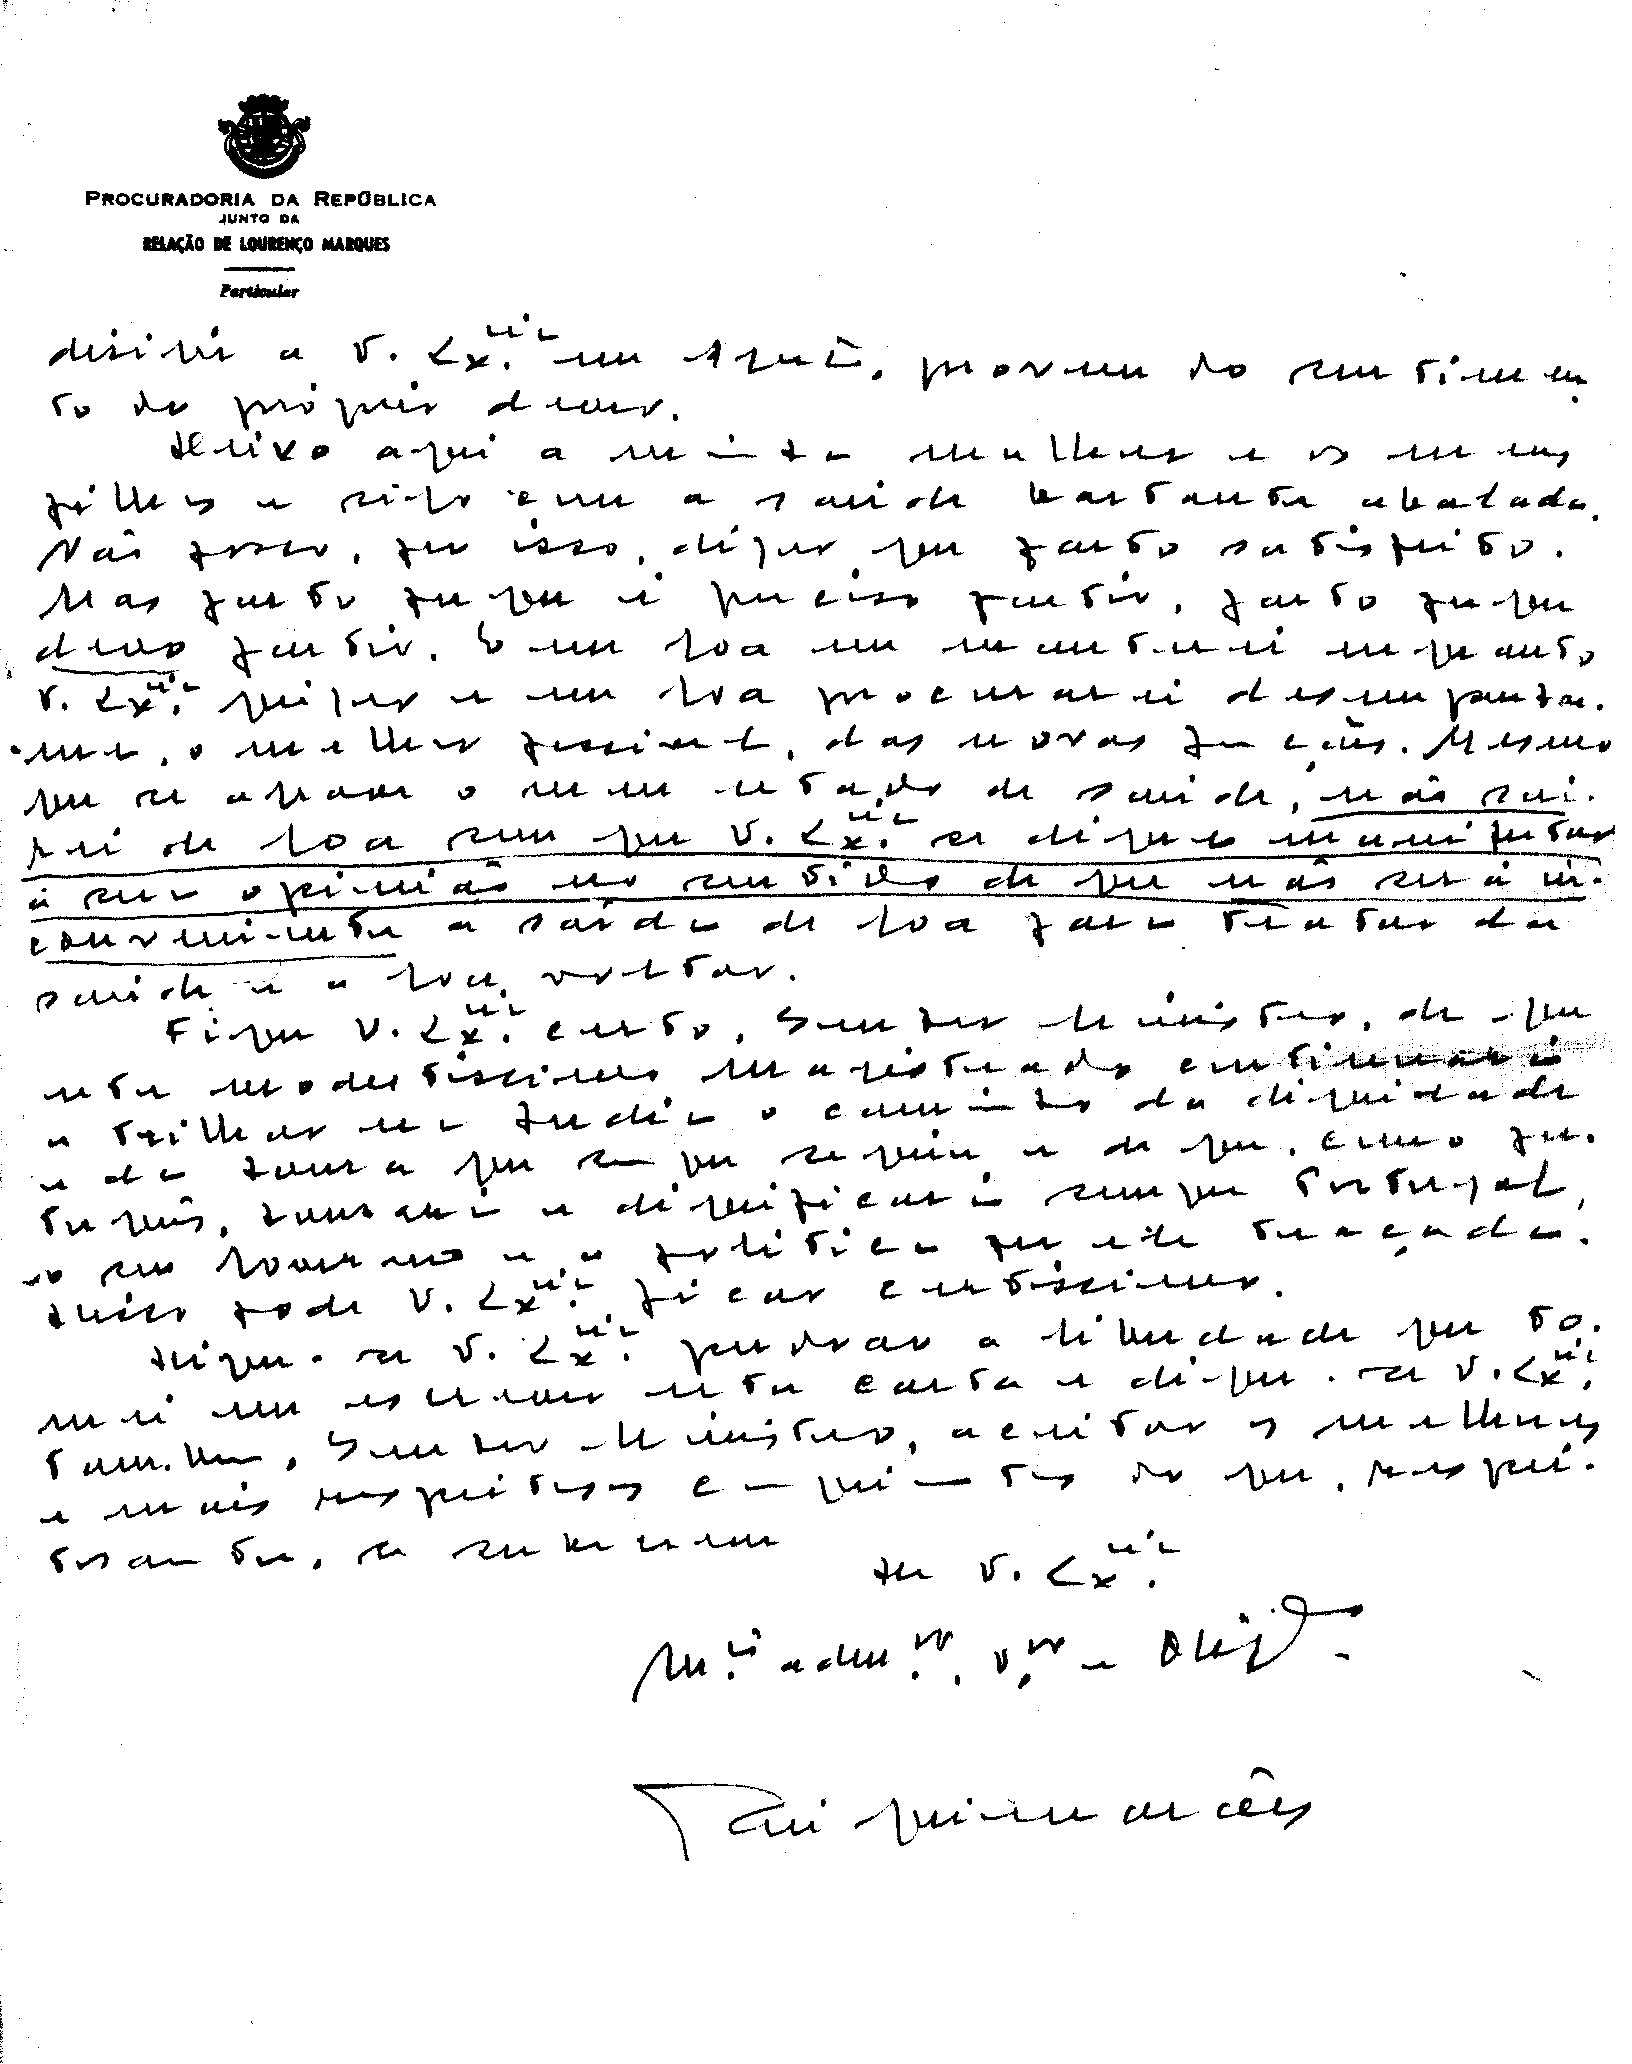 PROCURADORIA DA REPÚBLICA
JUNTO DA
RELAÇÃO DE LOURENÇO MARQUES
Particular
V. Ex.cia em Goa provem do sentimen-
to do próprio dever.
Deixo aqui a minha mulher e os meus
filhos e sigo com a saúde bastante abalada.
Não posso, por isso, dizer que parto satisfeito.
Mas parto porque é preciso partir, parto porque
devo partir. E em Goa me manterei enquanto
V. Ex.cia quizer e em Goa procurarei desempenhar-
-me, o melhor possivel, das novas funções. Mesmo
que se agrave o meu estado de saúde, não sai-
rei de Goa sem que V. Ex.cia se digne manifestar
a sua opinião no sentido de que não será in-
conveniente a saída de Goa para tratar da
saúde e a Goa voltar.
Fique V. Ex.cia certo, Senhor Ministro, de que
este modestissimo magistrado continuará
a trilhar na India o caminho da dignidade
e da honra que sempre seguiu e de que, como por-
tuguês, honrará e dignificará sempre Portugal,
o seu Governo e a politica por ele traçada.
Disso pode V. Ex.cia ficar certissimo.
Digne-se V. Ex.cia perdoar a liberdade que to-
mei em escrever esta carta e digne-se V. Ex.cia
tambem, Senhor Ministro, aceitar os melhores
e mais respeitosos cumprimentos do que, respei-
tosamente, se subscreve
De V. Ex.cia
M.to adm.or, v.or e Obgd.o
Rui Guimarães